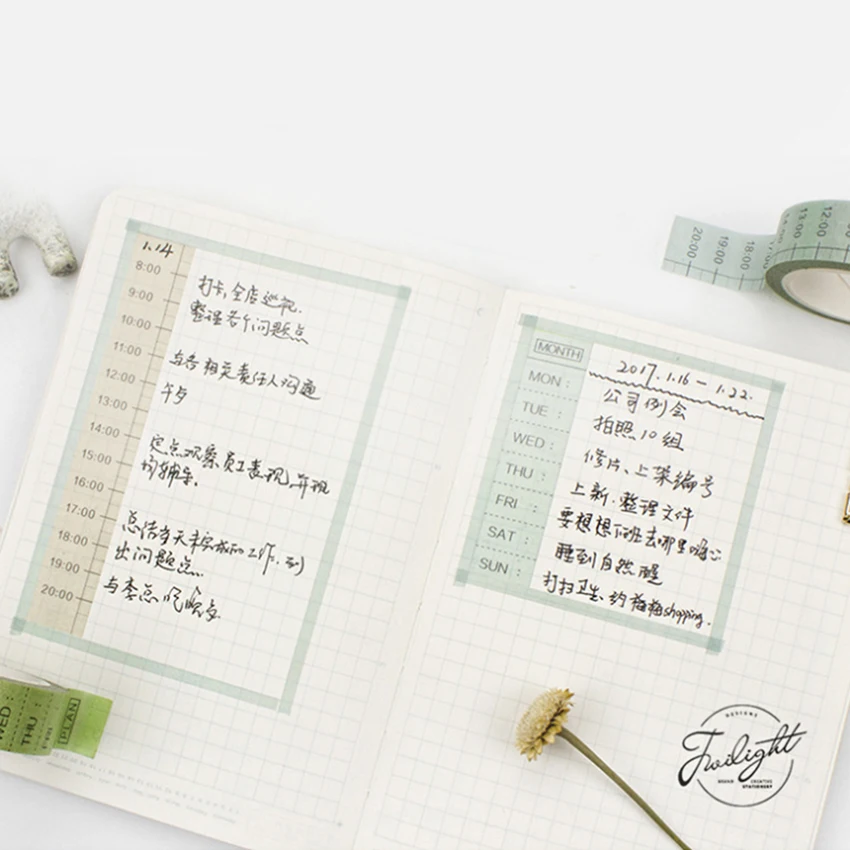 1.14
8:00
9:00
10:00
11:00
12:00
13:00
14:00
15:00
16:00
17:00
18:00
19:00
20:00
打卡,全店巡视.
整理各个问题点
与各相关责任人沟通
午歺
定点观察员工表现,并现
场辅导.
总结当天未完成的工作.列
出问题点
与李总吃晚歺
MONTH
2017.1.16 - 1.22.
MON: 公司例会
TUE: 拍照10组
WED: 修片、上架编号
THU: 上新.整理文件
FRI: 要想想下班去哪里嗨心
SAT: 睡到自然醒
SUN: 打扫卫生.约梅梅shopping.
20:00
19:00
18:00
13:00
12:00
WED:
THU:
PLAN
DESIGNS
Twilight
BRAND CREATIVE
STATIONERY